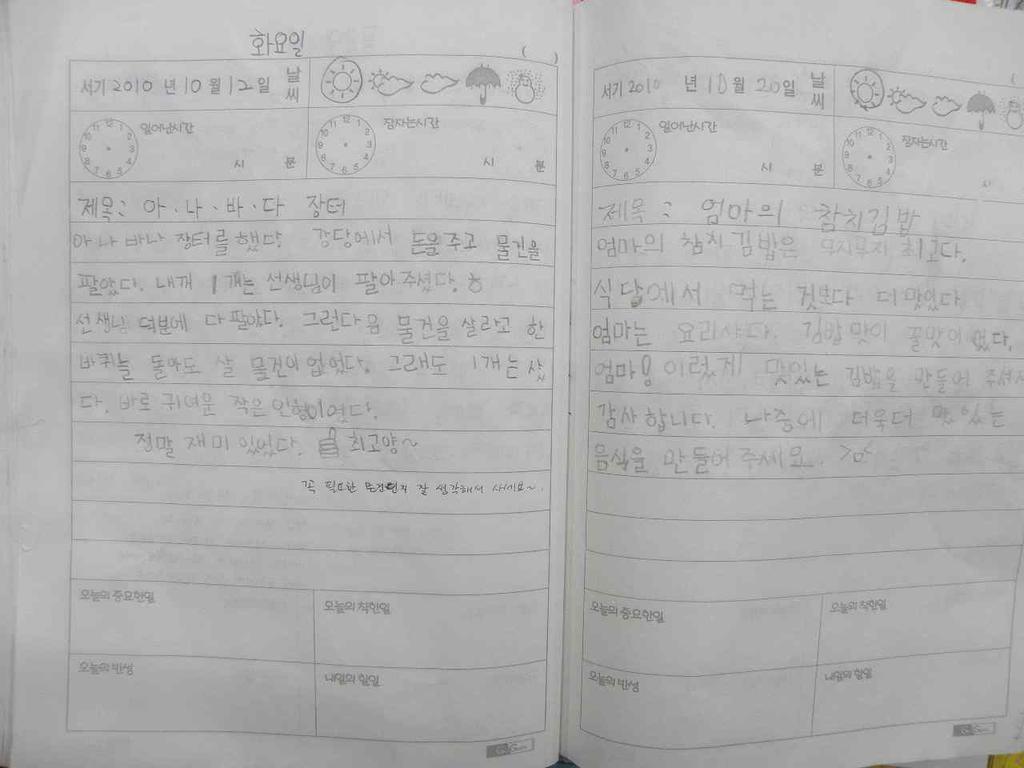 화요일
서기 2010 년 10 월 12 일 날씨
일어난시간 시 분 잠자는시간 시 분
제목: 아·나·바·다 장터
아나바나 장터를 했다. 강당에서 돈을 주고 물건을
팔았다. 내개 1개는 선생님이 팔아 주셨다.
선생님 덕분에 다 팔았다. 그런다음 물건을 살라고 한
바퀴를 돌아도 살 물건이 없었다. 그래도 1개는 샀
다. 바로 귀여운 작은 인형이였다.
정말 재미 있었다. 최고양~
꼭 필요한 물건인지 잘 생각해서 사세요~.
오늘의 중요한일 오늘의 착한일
오늘의 반성 내일의 할일
서기 2010 년 10 월 20 일 날씨
일어난시간 시 분 잠자는시간 시
제목: 엄마의 참치김밥
엄마의 참치 김밥은 무지무지 최고다.
식당에서 먹는 것보다 더 맛있다.
엄마는 요리사다. 김밥 맛이 꿀맛이 였다.
엄마! 이렇게 맛있는 김밥을 만들어 주셔서
감사합니다. 나중에 더욱더 맛있는
음식을 만들어 주세요.
오늘의 중요한일 오늘의 착한일
오늘의 반성 내일의 할일